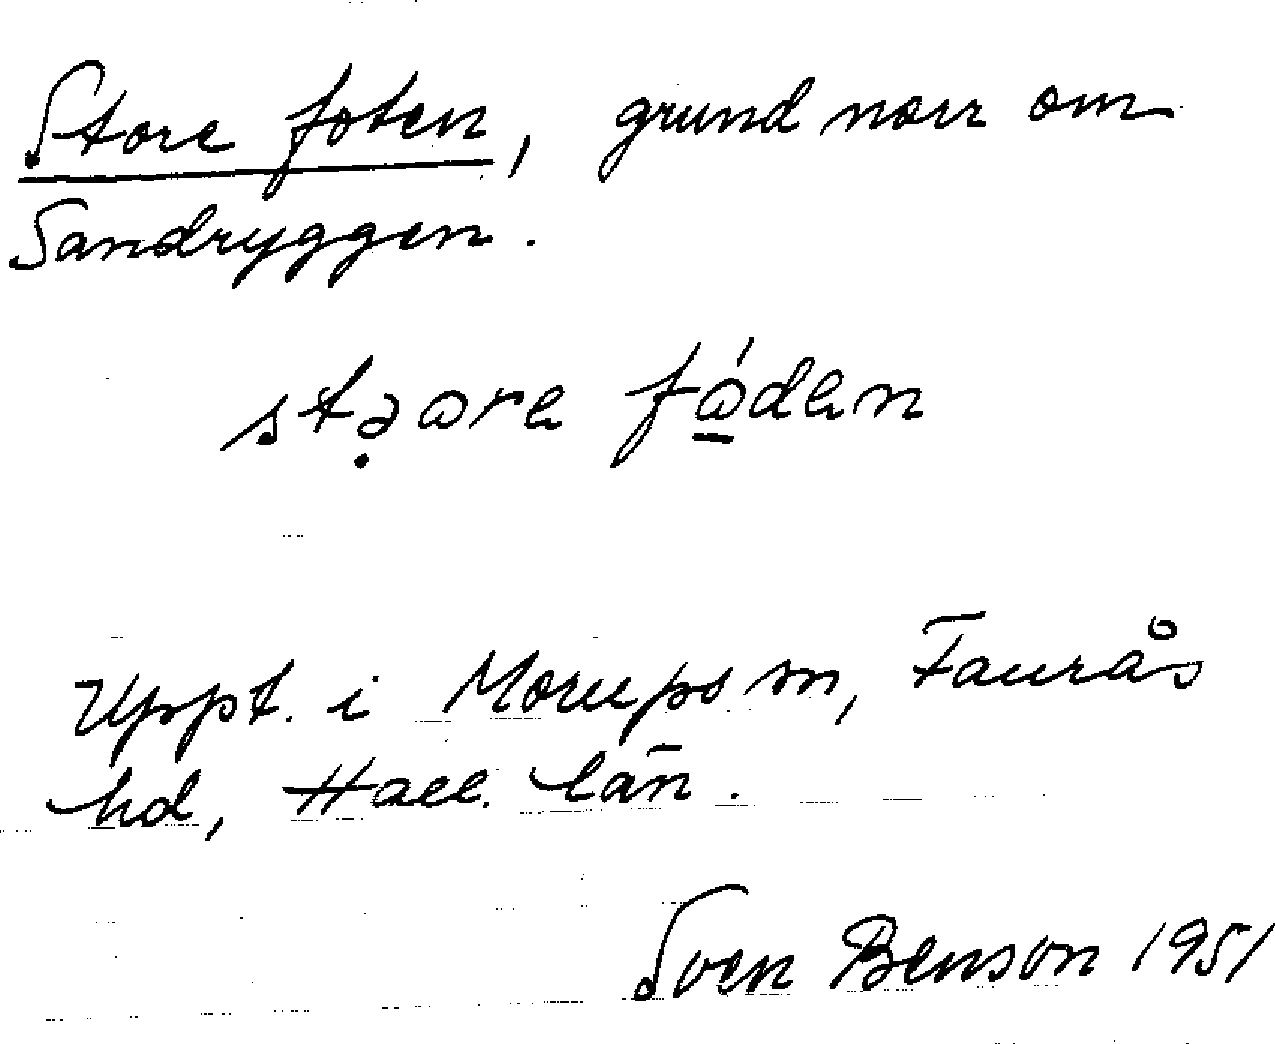 Store foten, grund norr om
Sandryggen.
Uppt. i Morups sn, Faurås
hd, Hall. län.
Sven Benson 1951